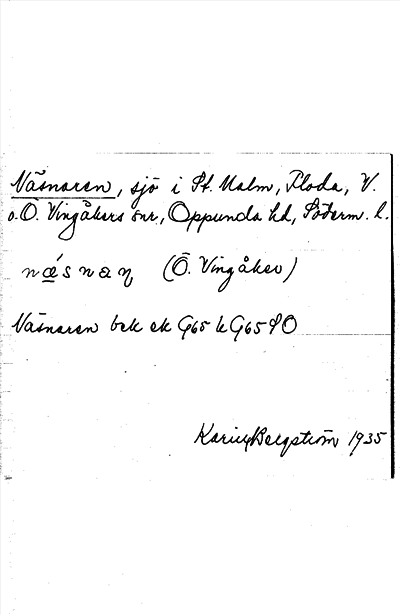 Näsnaren, sjö i St. Malm, Floda, V.
o. Ö. Vingåkers snr, Oppunda hd, Söderm. l.
næ´snaɳ (Ö. Vingåker)
Näsnaren bek ek G65 k G65 SO
Karin Bergström 1935